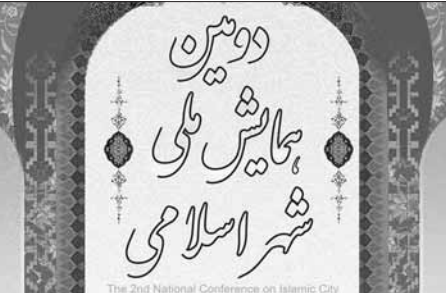 دومین
همایش ملی
شهر اسلامی
The 2nd National Conference on Islamic City